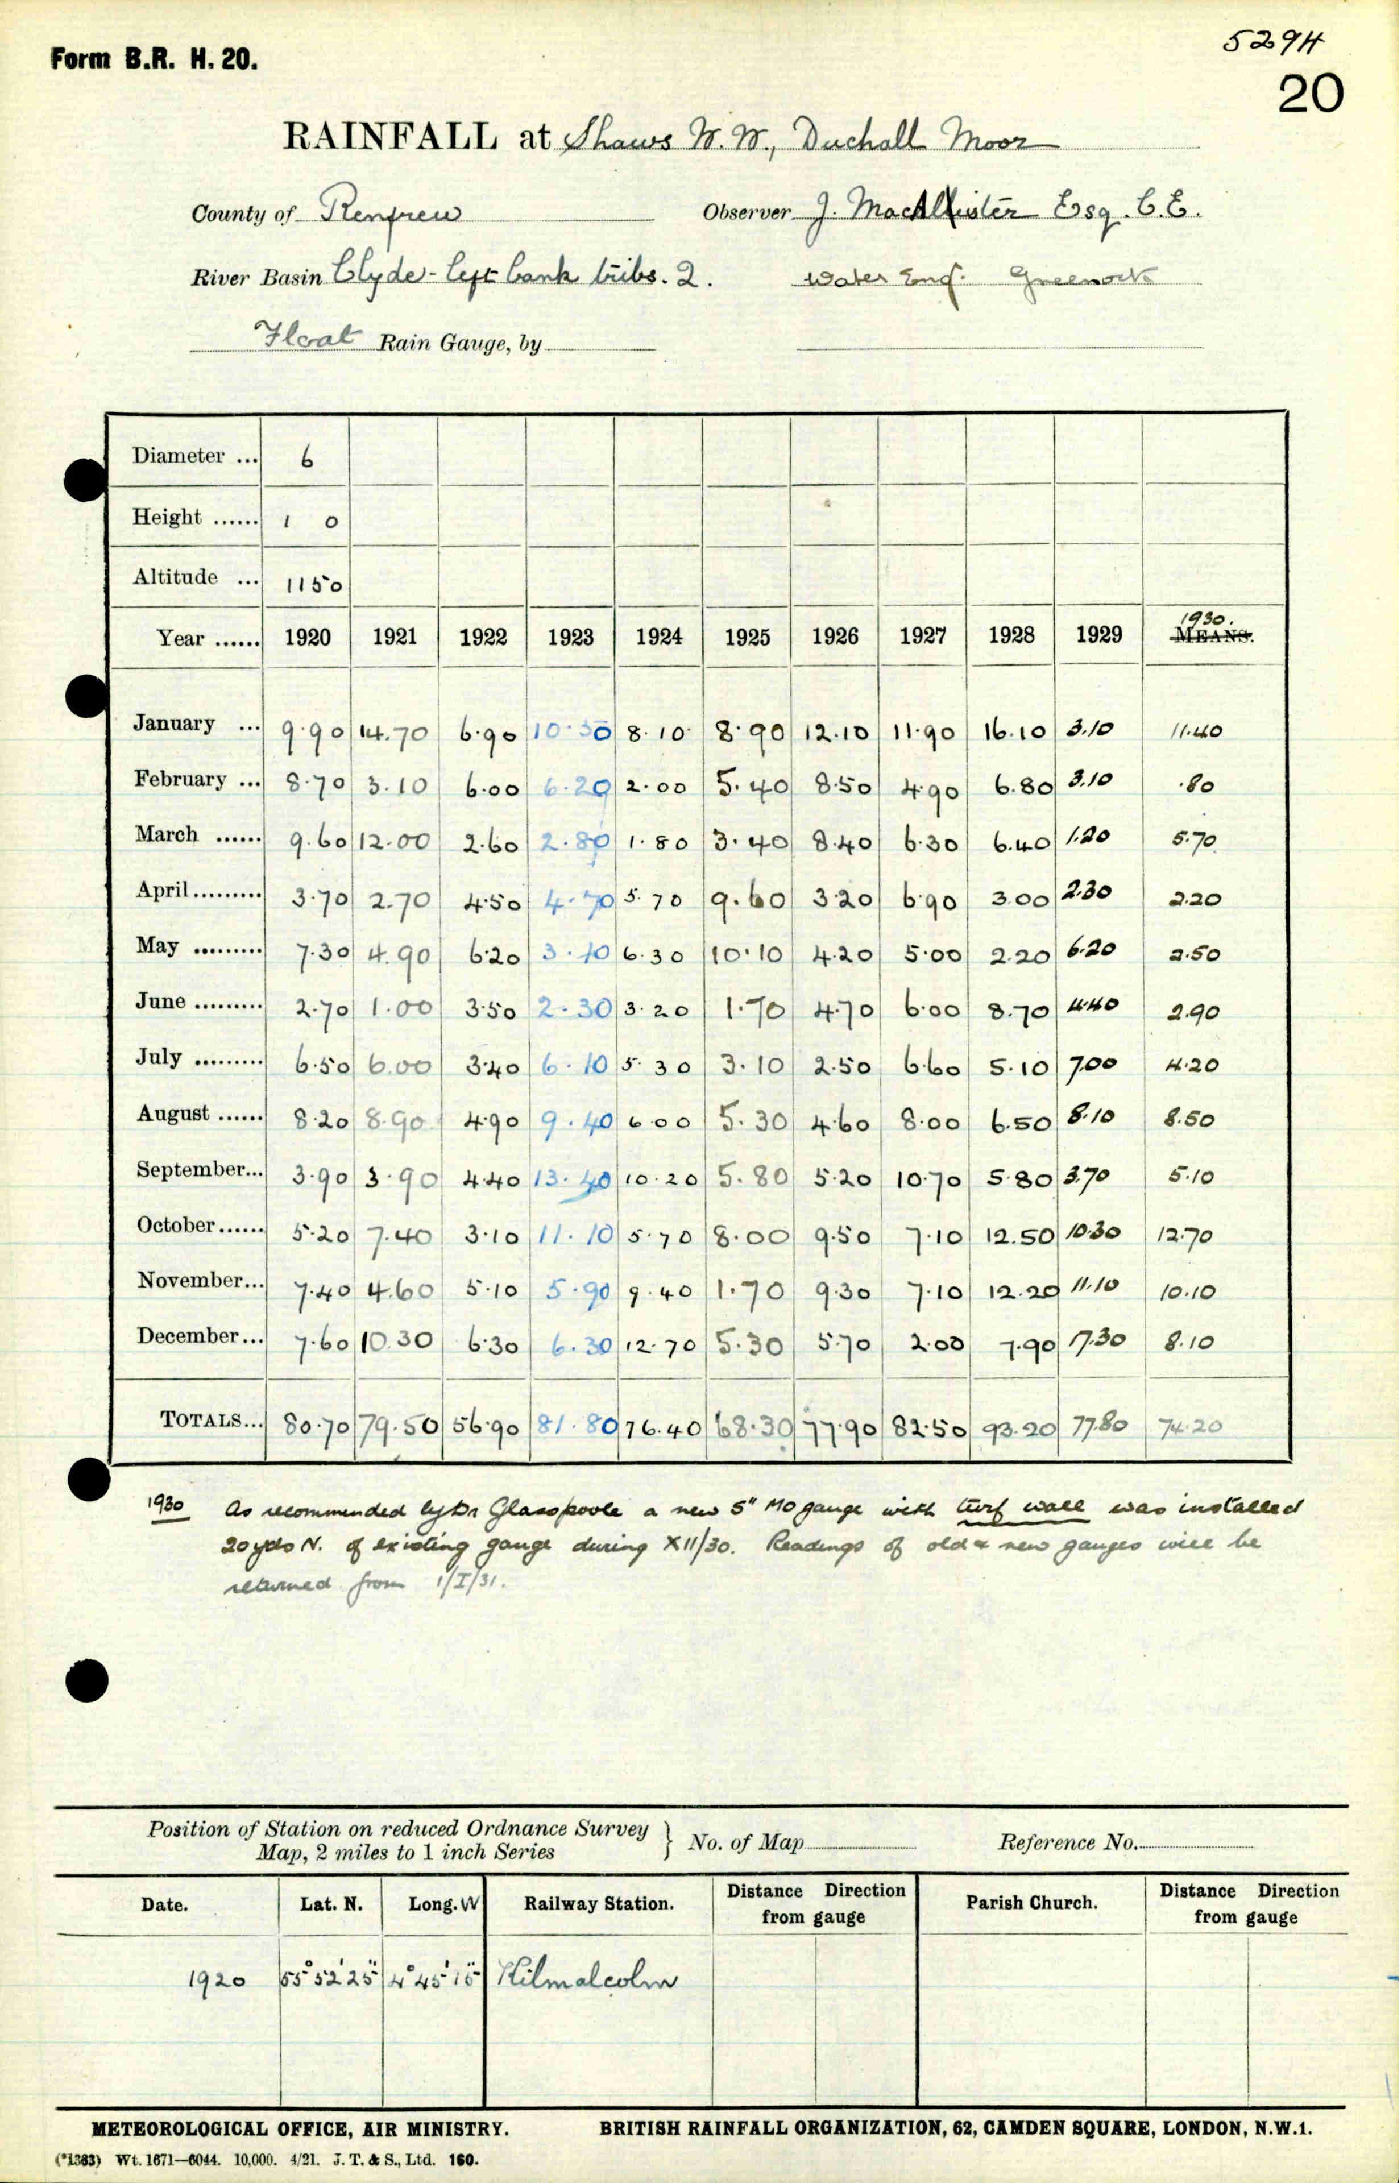 Form B.R. H. 20.
529H
20
RAINFALL at Shaws W. W., Duchall Moor
County of Renfrew Observer J. MacAllister Esq. C.E.
River Basin Clyde - left bank tribs. 2. Water Eng. Greenock
Float Rain Gauge, by
Diameter ... 6
Height ...... 1 0
Altitude ... 1150
1930.
Year ...... 1920 1921 1922 1923 1924 1925 1926 1927 1928 1929 MEANS.
January ... 9.90 14.70 6.90 10.50 8.10 8.90 12.10 11.90 16.10 3.10 11.40
February ... 8.70 3.10 6.00 6.20 2.00 5.40 8.50 4.90 6.80 3.10 .80
March ...... 9.60 12.00 2.60 2.80 1.80 3.40 8.40 6.30 6.40 1.20 5.70
April......... 3.70 2.70 4.50 4.70 5.70 9.60 3.20 6.90 3.00 2.30 2.20
May ......... 7.30 4.90 6.20 3.10 6.30 10.10 4.20 5.00 2.20 6.20 2.50
June ......... 2.70 1.00 3.50 2.30 3.20 1.70 4.70 6.00 8.70 4.40 2.90
July ......... 6.50 6.00 3.40 6.10 5.30 3.10 2.50 6.60 5.10 7.00 4.20
August ...... 8.20 8.90 4.90 9.40 6.00 5.30 4.60 8.00 6.50 8.10 8.50
September... 3.90 3.90 4.40 13.40 10.20 5.80 5.20 10.70 5.80 3.70 5.10
October...... 5.20 7.40 3.10 11.10 5.70 8.00 9.50 7.10 12.50 10.30 12.70
November... 7.40 4.60 5.10 5.90 9.40 1.70 9.30 7.10 12.20 11.10 10.10
December... 7.60 10.30 6.30 6.30 12.70 5.30 5.70 2.00 7.90 17.30 8.10
TOTALS... 80.70 79.50 56.90 81.80 76.40 68.30 77.90 82.50 93.20 77.80 74.20
1930 As recommended by Dr Glasspoole a new 5" MO gauge with turf wall was installed
20 yds N. of existing gauge during XII/30. Readings of old & new gauges will be
returned from 1/I/31.
Position of Station on reduced Ordnance Survey
Map, 2 miles to 1 inch Series } No. of Map Reference No.
Date. Lat. N. Long. W Railway Station. Distance Direction from gauge Parish Church. Distance Direction from gauge
1920 55° 52' 25" 4° 45' 15" Kilmalcolm
METEOROLOGICAL OFFICE, AIR MINISTRY. BRITISH RAINFALL ORGANIZATION, 62, CAMDEN SQUARE, LONDON, N.W.1.
(*1383) Wt. 1671—6044. 10,000. 4/21. J. T. & S., Ltd. 160.